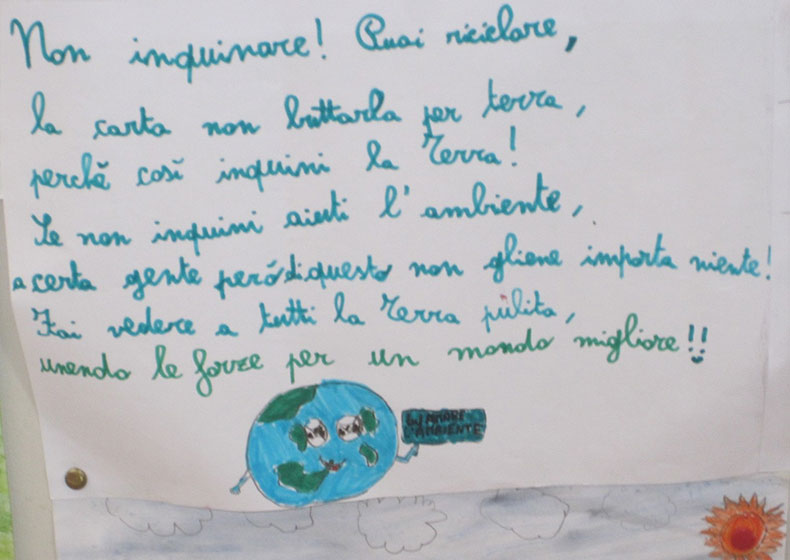 Non inquinare! Puoi riciclare,
la carta non buttarla per terra,
perchè così inquini la Terra!
Se non inquini aiuti l'ambiente,
a certa gente però di questo non gliene importa niente!
Fai vedere a tutti la Terra pulita,
unendo le forze per un mondo migliore!!
AMARE
L'AMBIENTE